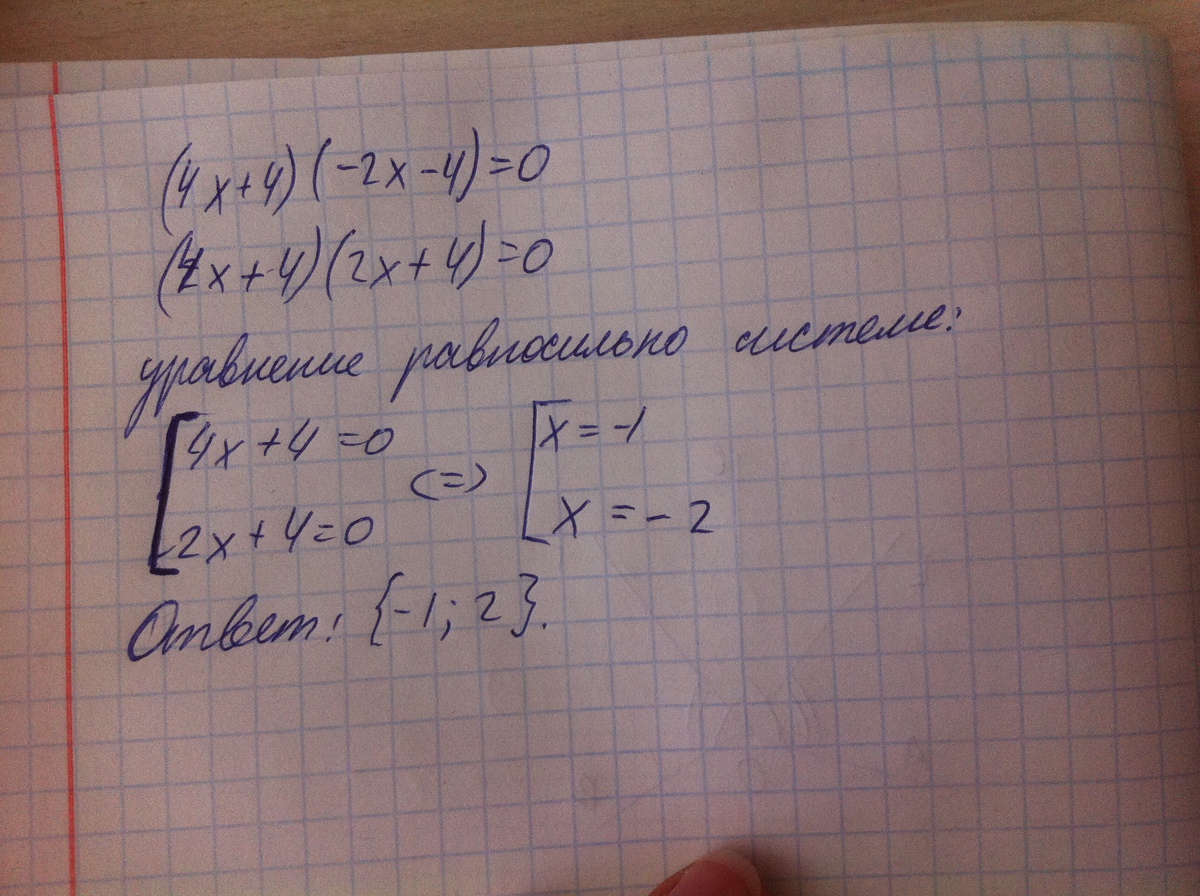 (4x+4)(-2x-4)=0
(4x+4)(2x+4)=0
уравнение равносильно системе:
[4x+4=0 <=> [x=-1
[2x+4=0 [x=-2
Ответ: {-1; 2}.